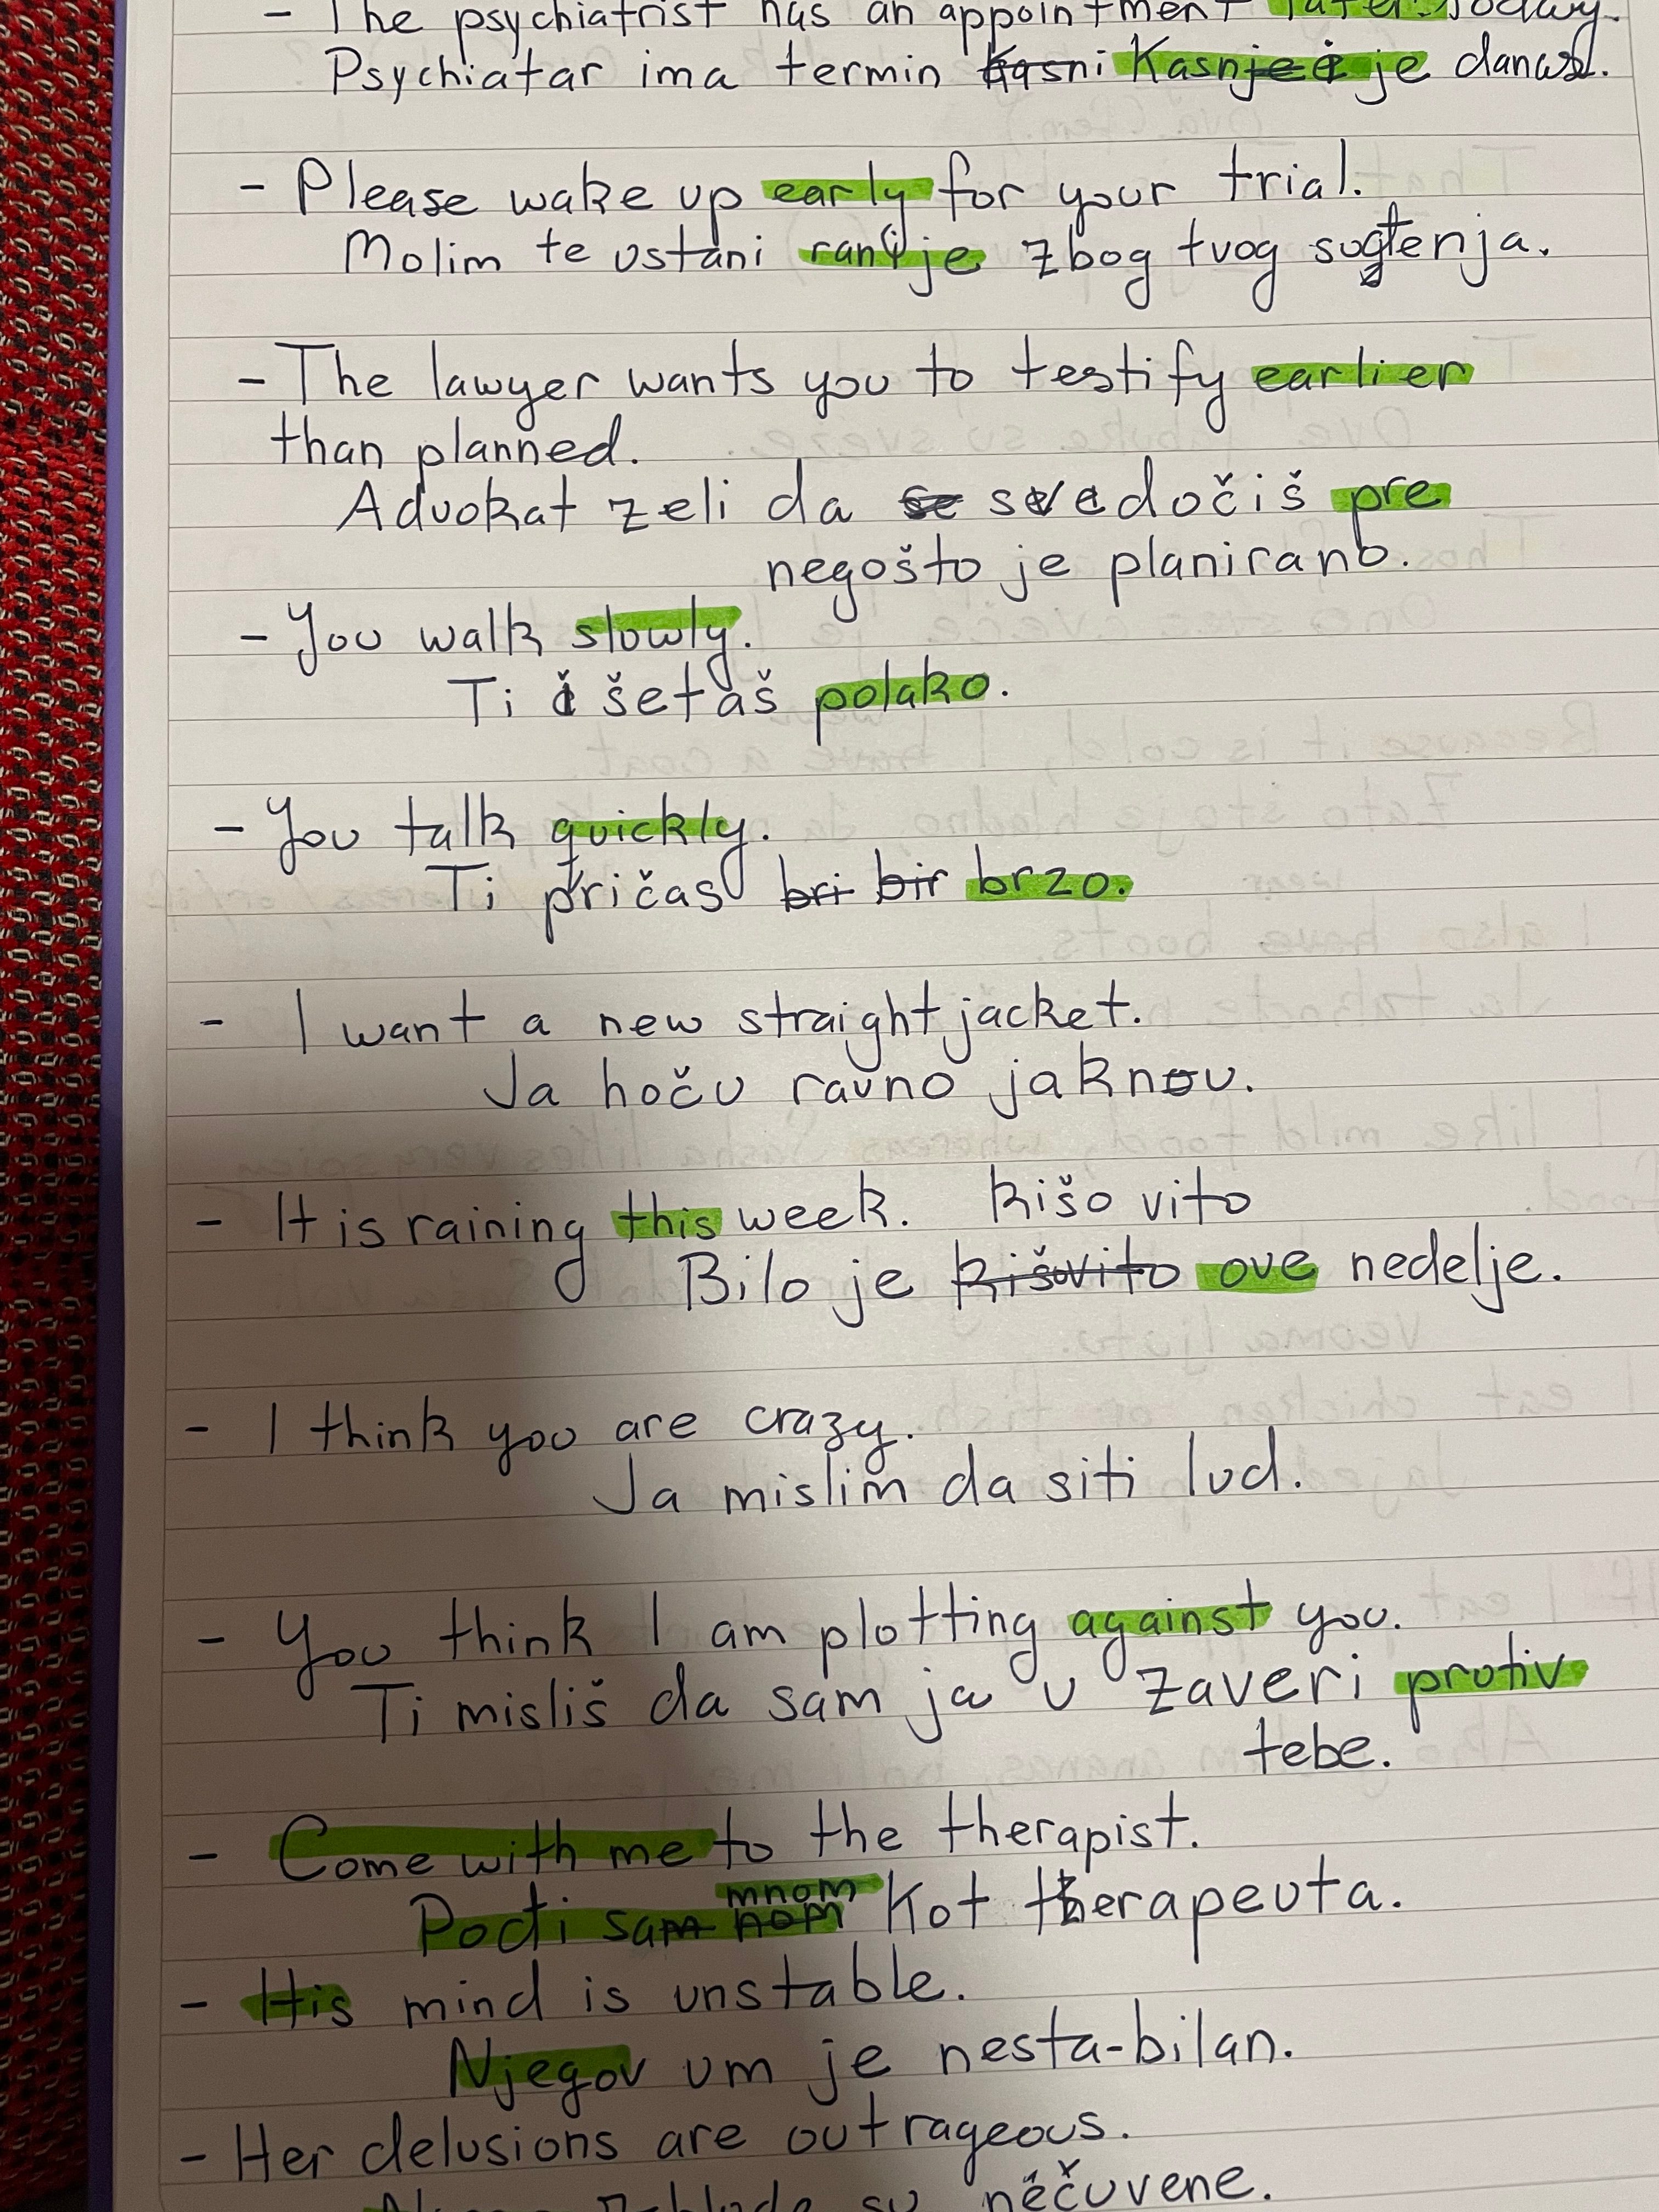 - The psychiatrist has an appointment later today.
Psychiatar ima termin kasni Kasnje je danas.
- Please wake up early for your trial.
Molim te ustani ranije zbog tvog
- The lawyer wants you to testify earlier
than planned.
Advokat zeli da se svedočiš pre
negošto je planirano.
- You walk slowly.
Ti šetaš polako.
- You talk quickly.
Ti pričaš bri bir brzo.
- I want a new straight jacket.
Ja hoču ravno jaknu.
- It is raining this week. kišo vito
Bilo je kišovito ove nedelje.
- I think you are crazy.
Ja mislim da si ti lud.
- You think I am plotting against you.
Ti misliš da sam ja u zaveri protiv
tebe.
- Come with me to the therapist.
mnom
Pođi sam nom Kot therapeuta.
- His mind is unstable.
Njegov um je nesta-bilan.
- Her delusions are outrageous.
su nečuvene.